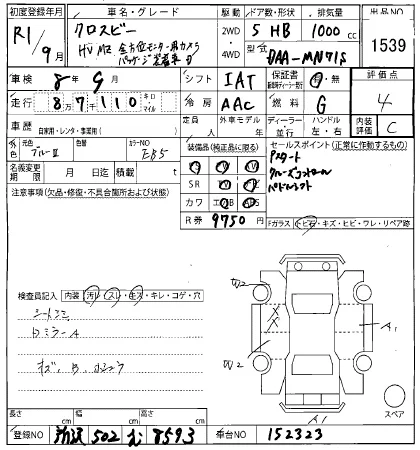 初度登録年月 車名・グレード 駆動 ドア数・形状 排気量 出品NO
R1/9月 クロスビー 2WD 4WD 5 HB 1000cc 1539
HV MZ 全方位モニター用カメラ
パッケージ装着車 型式 DAA-MN71S
車検 8年9月 シフト IAT 保証書 有・無 評価点
走行 87110 キロ・マイル 冷房 AAC 燃料 G 4
車歴 自家用・レンタ・事業用( ) 定員 人 外車モデル 年 ディーラー 並行 ハンドル 左・右 内装評価 C
元色 ブルーII 色替 カラーNO 装備品(純正品に限る) セールスポイント(正常に作動するもの)
名義変更期限 月 日迄 積載 t SR Pスタート
注意事項(欠品・修復・不具合箇所および状態) カワ クルーズコントロール
R券 9750 パドルシフト
Fガラス トビ石・キズ・ヒビ・ワレ・リペア跡
検査員記入 内装 汚レ・スレ・生ズ・キレ・コゲ・穴
シートシミ
ロミラーA
W2
W2
A1
A1
スペア
長さ cm 幅 cm 高さ cm
登録NO 新潟 502 8593 車台NO 152323